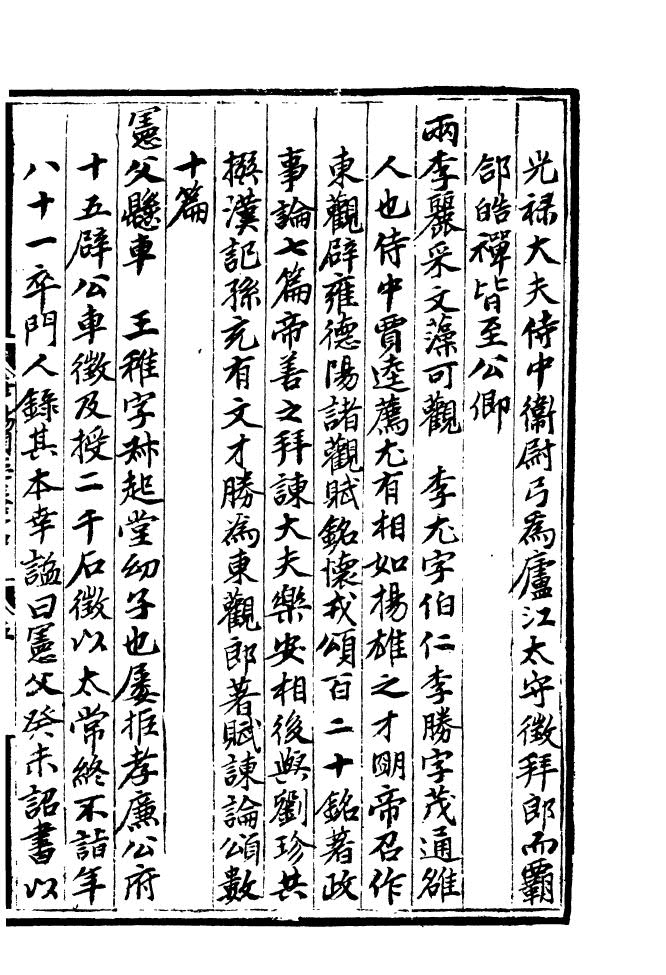 光禄大夫侍中衞尉弓為廬江太守徵拜郎而霸
郃皓禪皆至公卿
兩李麗采文藻可觀　李尤字伯仁李勝字茂通雒
人也侍中賈逵薦尤有相如揚雄之才明帝召作
東觀辟雍德陽諸觀賦銘懷戎頌百二十銘著政
事論七篇帝善之拜諫大夫樂安相後與劉珍共
撰漢記孫充有文才勝為東觀郎著賦諫論頌數
十篇
憲父懸車　王稚字叔起堂幼子也屡拒孝廉公府
十五辟公車徵及授二千石徵以太常終不詣年
八十一卒門人錄其本幸諡曰憲父癸未詔書以